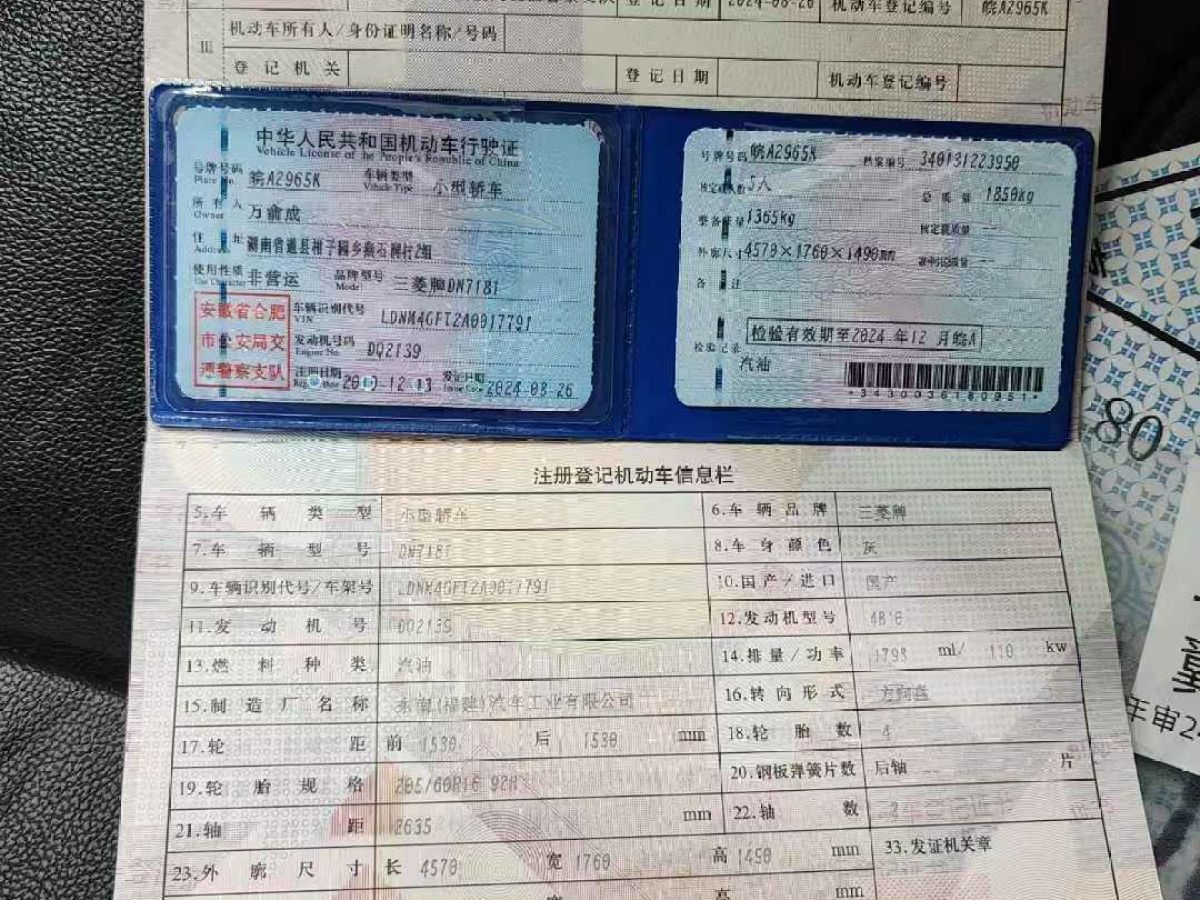 登记日期 2024-08-26 机动车登记编号 皖A2965K
III 机动车所有人/身份证明名称/号码
登记机关 登记日期 机动车登记编号
中华人民共和国机动车行驶证
Vehicle License of the People's Republic of China
号牌号码 皖A2965K 车辆类型 小型轿车
Plate No. Vehicle Type
所有人 万俞成
Owner
住址 湖南省道县柑子园乡燕石洞村2组
Address
使用性质 非营运 品牌型号 三菱牌DN7181
Use Character Model
安徽省合肥
市公安局交
通警察支队
车辆识别代号 LDNM4GFT2A0017791
VIN
发动机号码 DQ2139
Engine No.
注册日期 12-13 发证日期 2024-08-26
Issue Date
号牌号码 皖A2965K 档案编号 340131223950
核定载人数 5人 总质量 1850kg
整备质量 1365kg 核定载质量 --
外廓尺寸 4570×1760×1490mm 准牵引总质量 --
备注
检验有效期至2024年12月皖A
检验记录
汽油
*3430036180951*
80
年审2
注册登记机动车信息栏
5.车辆类型 小型轿车 6.车辆品牌 三菱牌
7.车辆型号 DN7181 8.车身颜色 灰
9.车辆识别代号/车架号 LDNM4GFT2A0017791 10.国产/进口 国产
11.发动机号 DQ2139 12.发动机型号
13.燃料种类 汽油 14.排量/功率 1798 ml/ 110 kw
15.制造厂名称 东南(福建)汽车工业有限公司 16.转向形式 方向盘
17.轮距 前 1530 后 1530 mm 18.轮胎数 4
19.轮胎规格 205/60R16 92H 20.钢板弹簧片数 后轴 片
21.轴距 2635 mm 22.轴数 2
23.外廓尺寸 长 4570 宽 1760 高 1490 mm 33.发证机关章
宽 高 mm